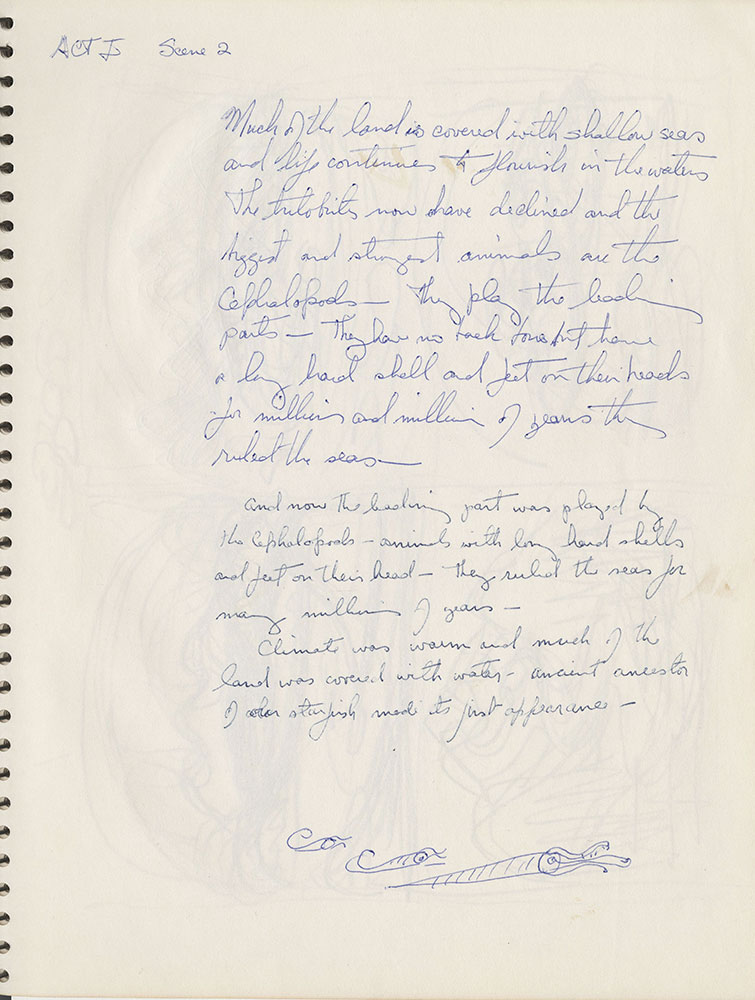 ACT I Scene 2
Much of the land is covered with shallow seas
and life continues to flourish in the waters
The trilobites now have declined and the
biggest and strongest animals are the
Cephalopods — They play the leading
parts — They have no back bone but have
a long hard shell and feet on their heads
for millions and millions of years they
ruled the seas —
and now the leading part was played by
the Cephalopods — animals with long hard shells
and feet on their head — They ruled the seas for
many millions of years —
Climate was warm and much of the
land was covered with water — ancient ancestor
of starfish made its first appearance —